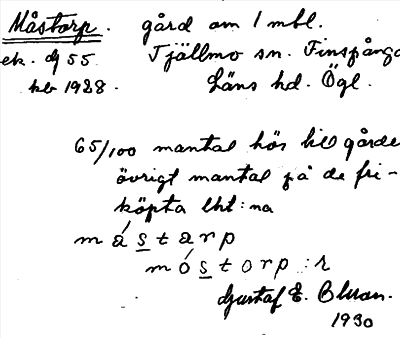 Måstorp. gård om 1 mtl.
ek. dj 55 Tjällmo sn. Finspånga
hbr 1928. Läns hd. Ögl.
65/100 mantal hör till gårde
övrigt mantal på de fri-
köpta lht:na
måstarp
móstorp :r
Gustaf E. Bluan.
1930